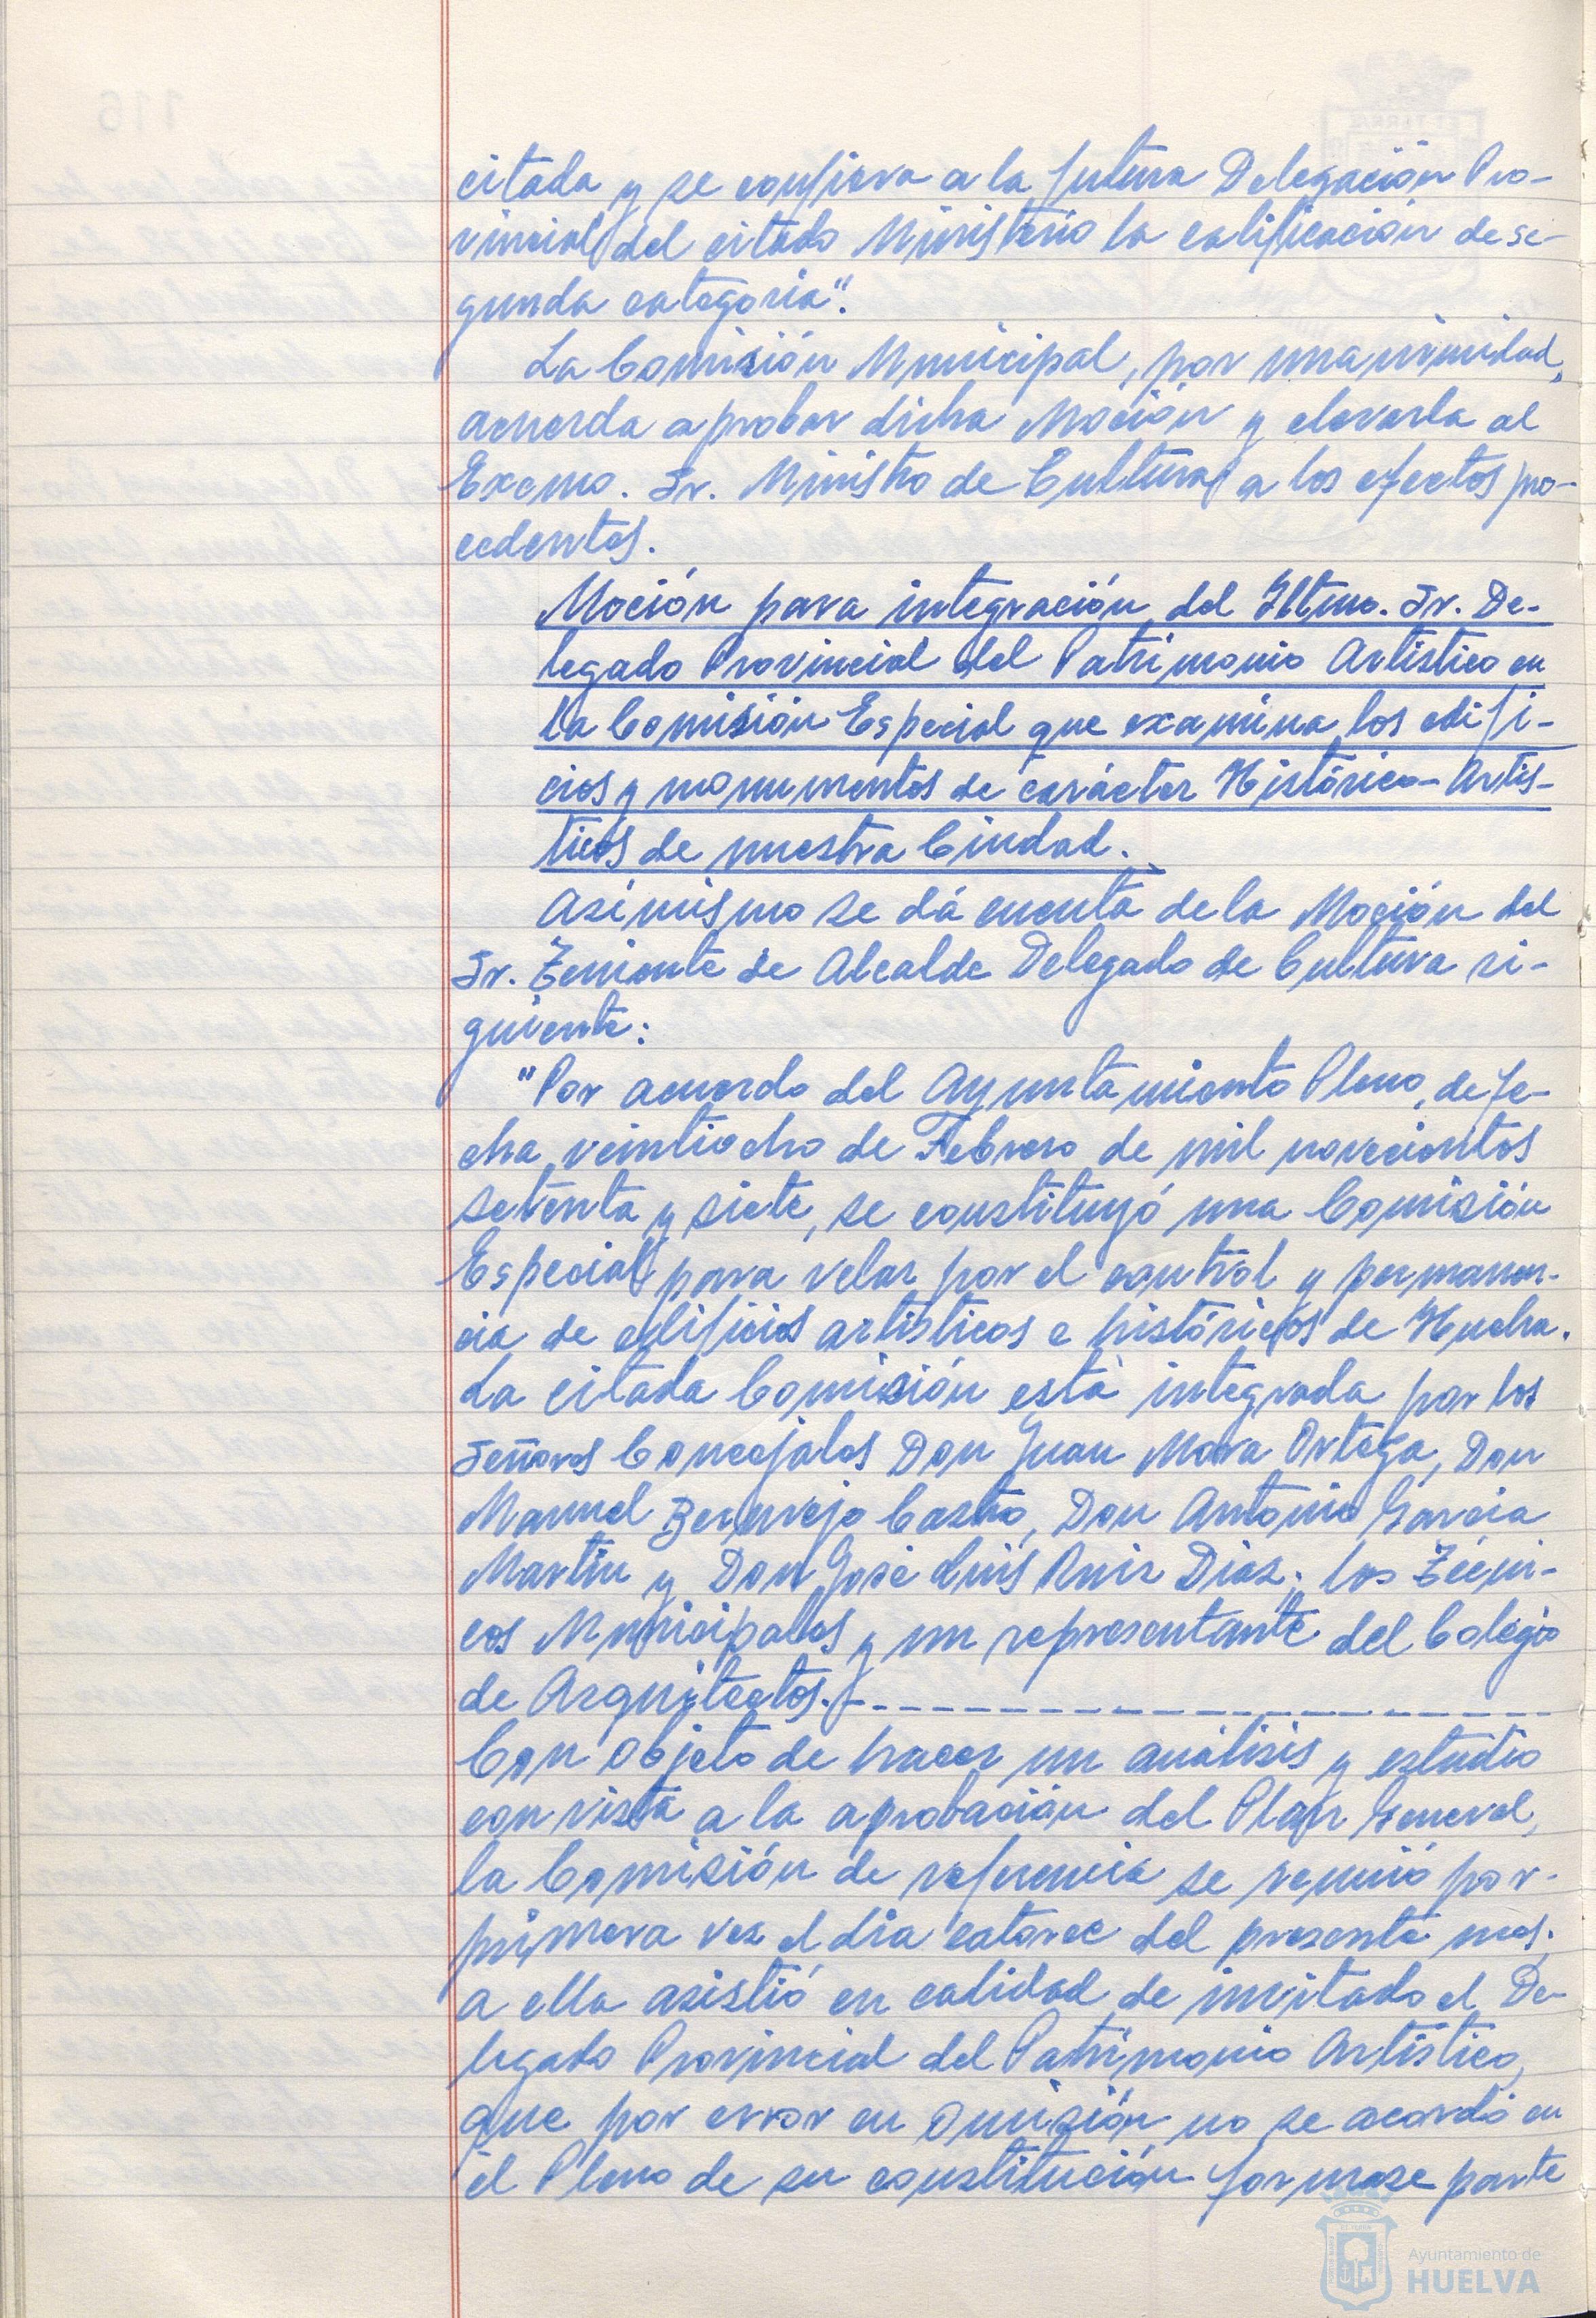 citada y se confiera a la futura Delegación Pro-
vincial del citado Ministerio la calificación de se-
gunda categoria".
La Comisión Municipal, por unanimidad,
acuerda aprobar dicha Moción y elevarla al
Excmo. Sr. Ministro de Cultura a los efectos pro-
cedentes.
Moción para integración del Iltmo. Sr. De-
legado Provincial del Patrimonio Artístico en
la Comisión Especial que examina los edifi-
cios y monumentos de carácter Histórico-Artís-
ticos de nuestra Ciudad.
Asimismo se dá cuenta de la Moción del
Sr. Teniente de Alcalde Delegado de Cultura si-
guiente:
"Por acuerdo del Ayuntamiento Pleno, de fe-
cha veintiocho de Febrero de mil novecientos
setenta y siete, se constituyó una Comisión
Especial para velar por el control y permanen-
cia de edificios artísticos e históricos de Huelva.
La citada Comisión está integrada por los
Señores Concejales Don Juan Mora Ortega, Don
Manuel Bermejo Castro, Don Antonio Garcia
Martin y Don José Luis Ruiz Diaz; los Técni-
cos Municipales y un representante del Colegio
de Arquitectos.-------
Con objeto de hacer un análisis y estudio
con vista a la aprobación del Plan General,
la Comisión de referencia se reunió por
primera vez el dia catorce del presente mes;
a ella asistió en calidad de invitado el De-
legado Provincial del Patrimonio Artístico,
que por error en omisión no se acordó en
el Pleno de su constitución formase parte
Ayuntamiento de
HUELVA